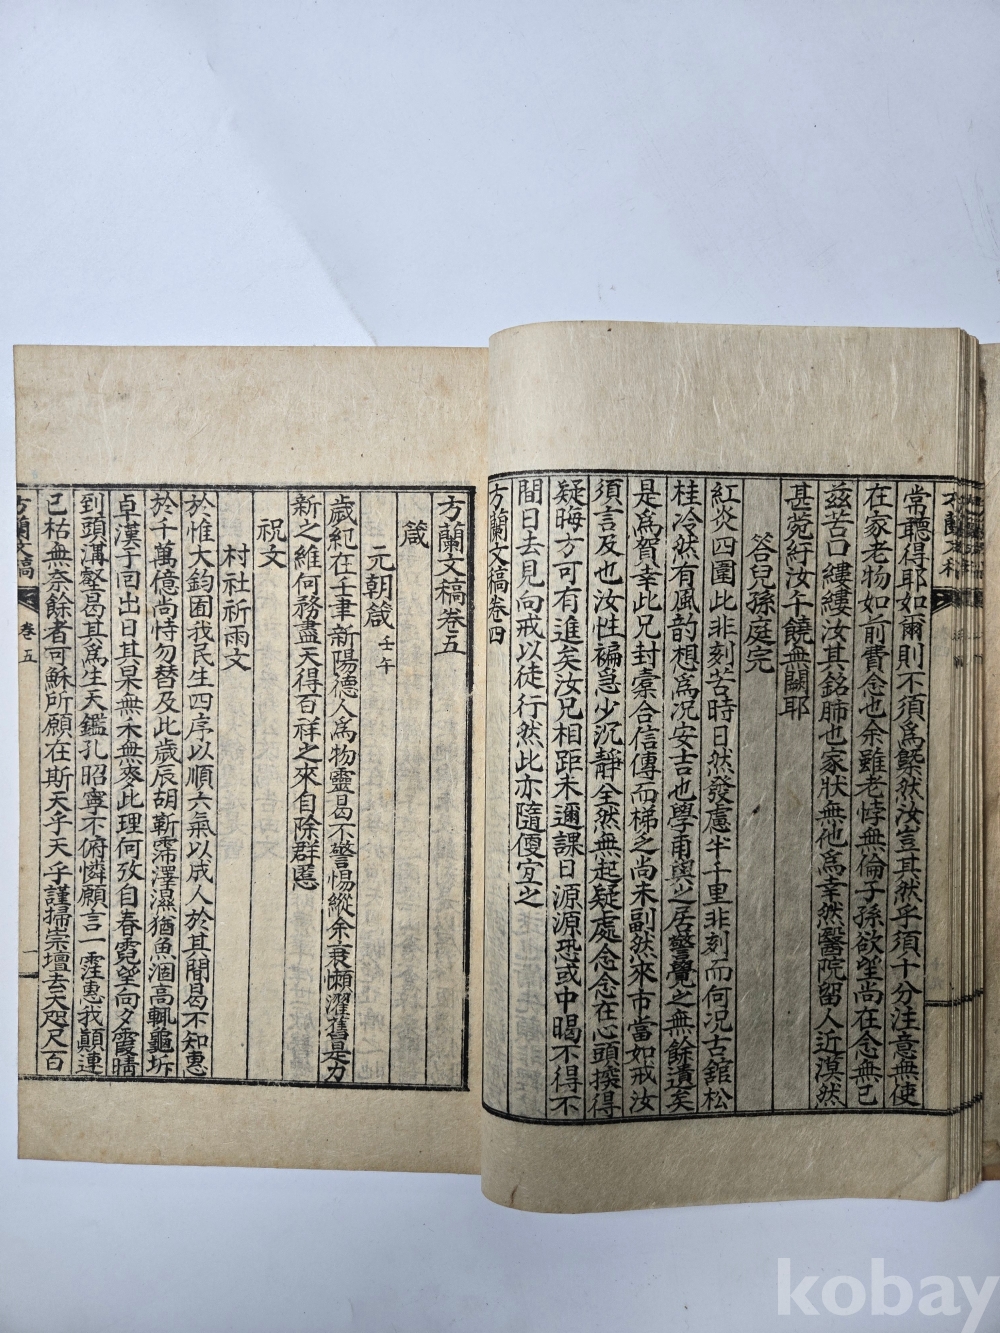 常聽得耶如爾則不須爲槩然汝豈其然乎須十分注意無使
在家老物如前費念也余雖老悖無倫子孫欲望尚在念無已
玆苦口縷縷汝其銘肺也家狀無他爲幸然醫院留人近漠然
甚菀紆汝午饒無關耶
答兒孫庭完
紅炎四圍此非刻苦時日然發慮半千里非刻而何況古舘松
桂冷然有風韵想爲况安吉也學甫與之居警覺之無餘遺矣
是爲賀幸此兄封橐合信傳而梯之尚未副然來市當如戒汝
須言及也汝性褊急少沉靜全然無起疑處念念在心頭撥得
疑晦方可有進矣汝兄相距未邇課日源源恐或中暍不得不
間日去見向戒以徒行然此亦隨便宜之
方蘭文稿卷四
方蘭文稿卷五
箴
元朝箴 壬午
歲紀在壬聿新陽德人爲物靈曷不警惕縱余衰懶濯舊是力
新之維何務盡天得百祥之來自除群慝
祝文
村社祈雨文
於惟大鈞囿我民生四序以順六氣以成人於其間曷不知惠
於千萬億尚恃勿替及此歲辰胡靳霈澤濕猶魚涸高輒龜坼
卓漢于回出日其杲無禾無麥此理何攷自春霓望向夕霞晴
到頭溝壑曷其爲生天鑑孔昭寧不俯憐願言一霔惠我顚連
已枯無奈餘者可穌所願在斯天乎天乎謹掃崇壇去天咫尺百
方蘭文稿 卷五 一
kobay